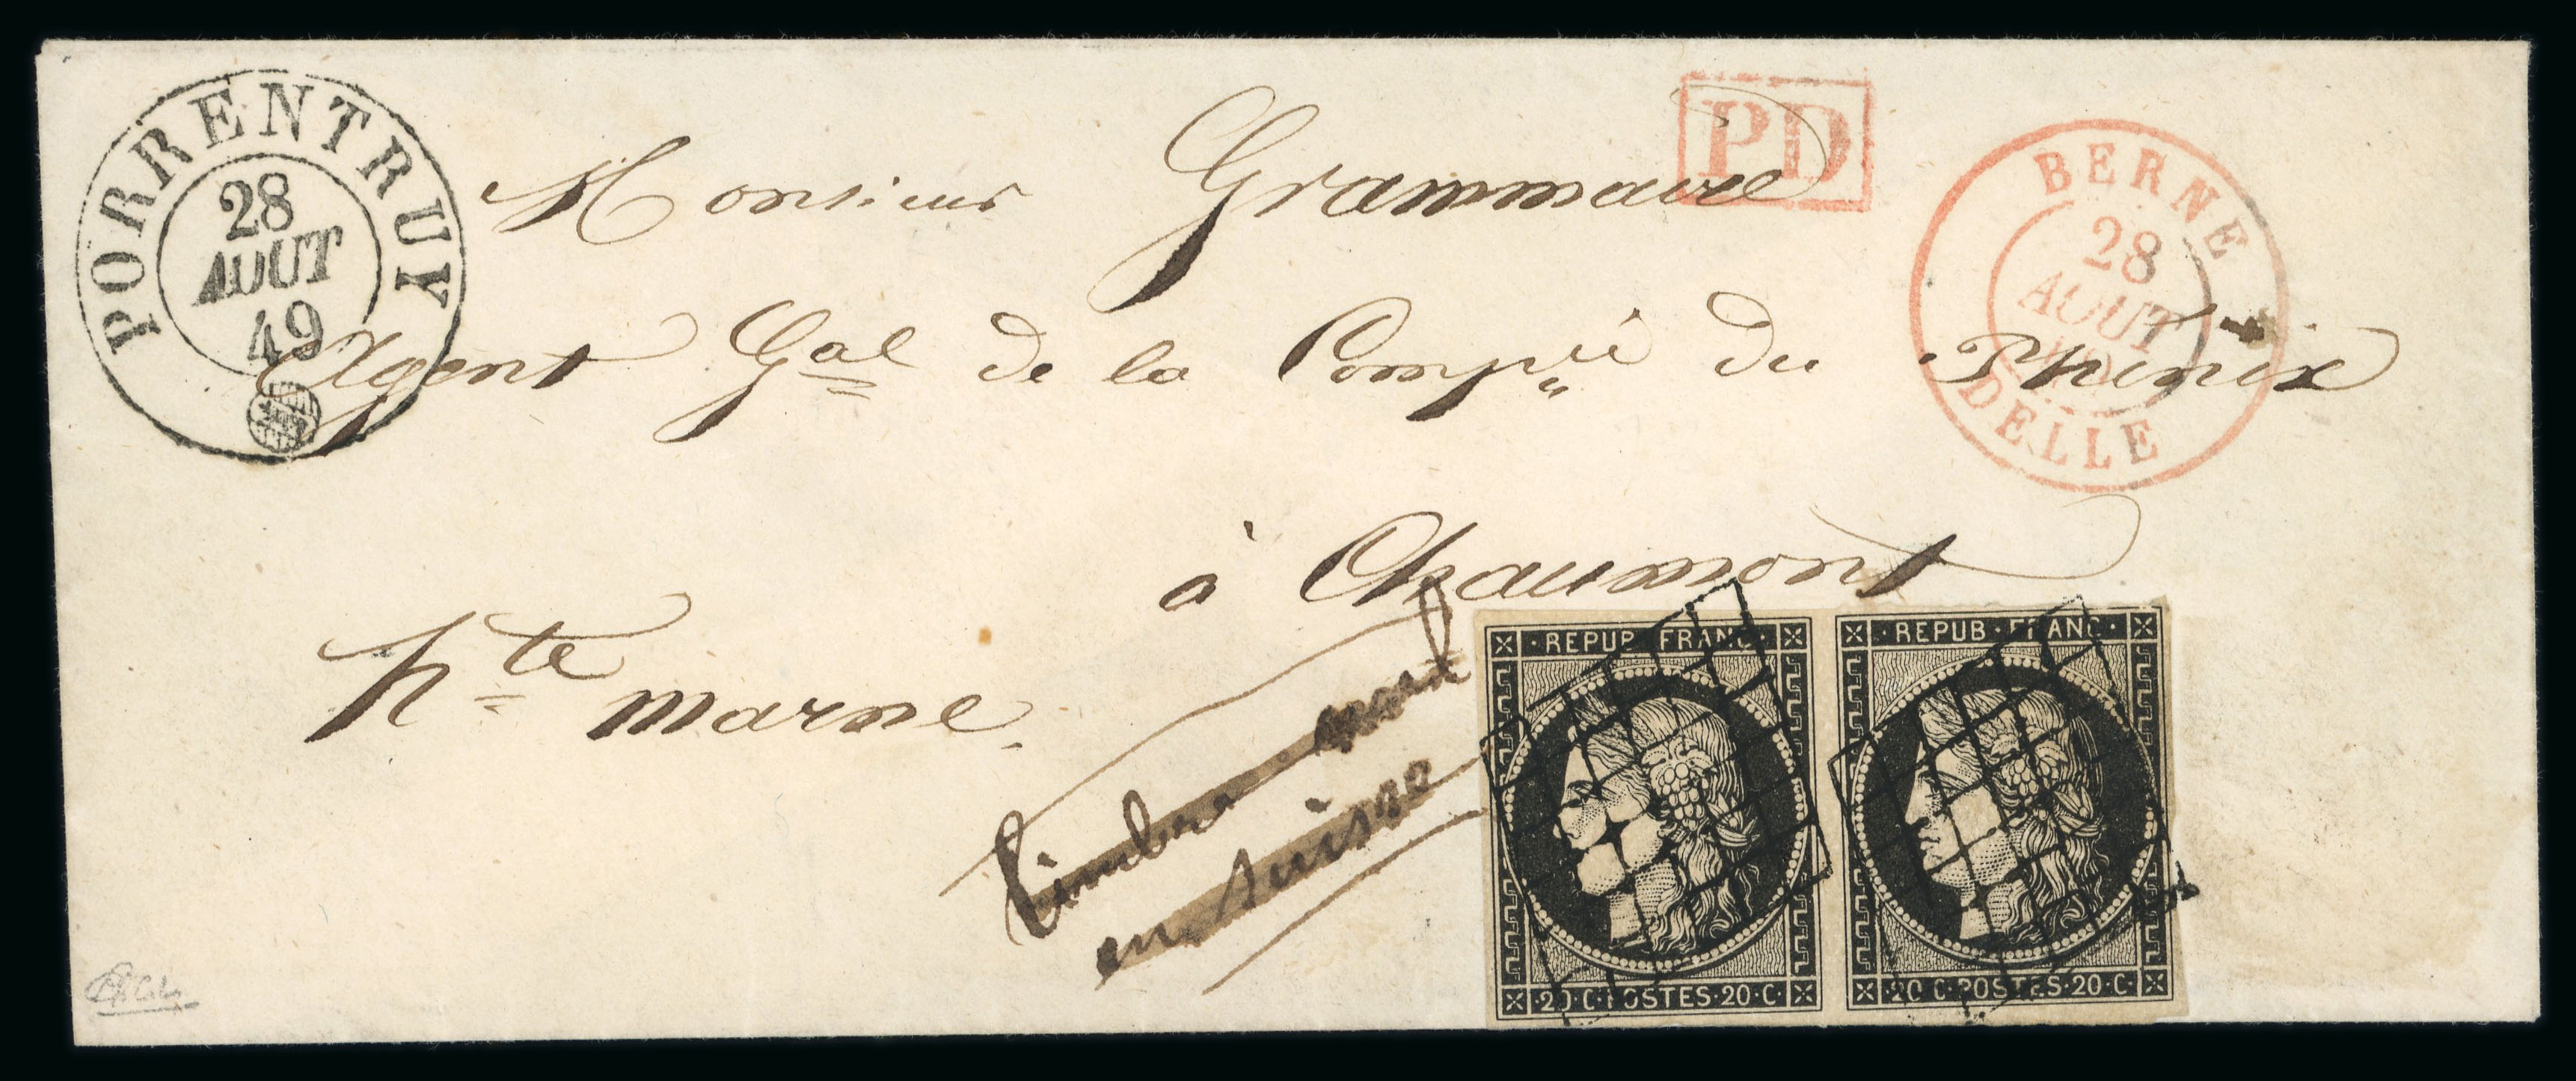 PORRENTRUY
28
AOUT
49
PD
BERNE
28
AOUT
DELLE
Monsieur Grammaire
Agent Gal de la Compie du Phénix
à Chaumont
hte marne.
timbre
en Suisse
REPUB · FRANC ·
20 · C · POSTES · 20 · C ·
REPUB · FRANC ·
20 · C · POSTES · 20 · C ·